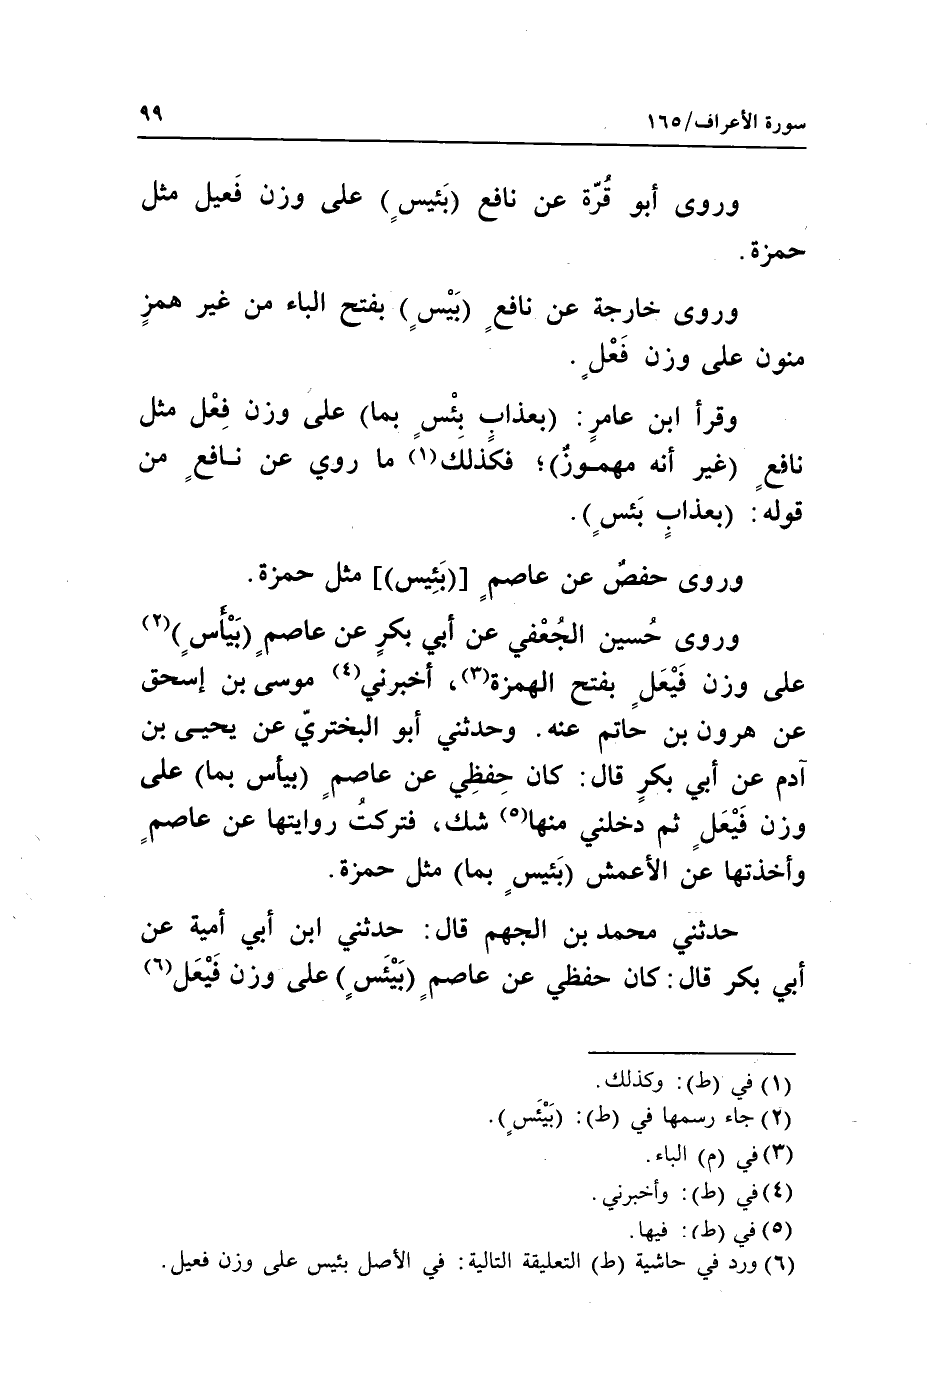 سورة الأعراف/١٦٥ ٩٩
وروى أبو قُرّة عن نافع (بَئيسٍ) على وزن فَعيل مثل
حمزة.
وروى خارجة عن نافعٍ (بَيْسٍ) بفتح الباء من غير همزٍ
منون على وزن فَعْلٍ.
وقرأ ابن عامرٍ: (بعذابٍ بِئْسٍ بما) على وزن فِعْل مثل
نافعٍ (غير أنه مهموزٌ)؛ فكذلك(١) ما روي عن نافعٍ من
قوله: (بعذابٍ بَئسٍ).
وروى حفصٌ عن عاصمٍ [(بَئِيس)] مثل حمزة.
وروى حُسين الجُعْفي عن أبي بكرٍ عن عاصمٍ (بَيْأَسٍ)(٢)
على وزن فَيْعَلٍ بفتح الهمزة(٣)، أخبرني(٤) موسى بن إسحق
عن هرون بن حاتم عنه. وحدثني أبو البختريّ عن يحيى بن
آدم عن أبي بكرٍ قال: كان حِفظِي عن عاصمٍ (بيأس بما) على
وزن فَيْعَلٍ ثم دخلني منها(٥) شك، فتركتُ روايتها عن عاصمٍ
وأخذتها عن الأعمش (بَئيسٍ بما) مثل حمزة.
حدثني محمد بن الجهم قال: حدثني ابن أبي أمية عن
أبي بكر قال: كان حفظي عن عاصمٍ (بَيْئَسٍ) على وزن فَيْعَل(٦)
(١) في (ط): وكذلك.
(٢) جاء رسمها في (ط): (بَيْئَسٍ).
(٣) في (م) الباء.
(٤) في (ط): وأخبرني.
(٥) في (ط): فيها.
(٦) ورد في حاشية (ط) التعليقة التالية: في الأصل بئيس على وزن فعيل.